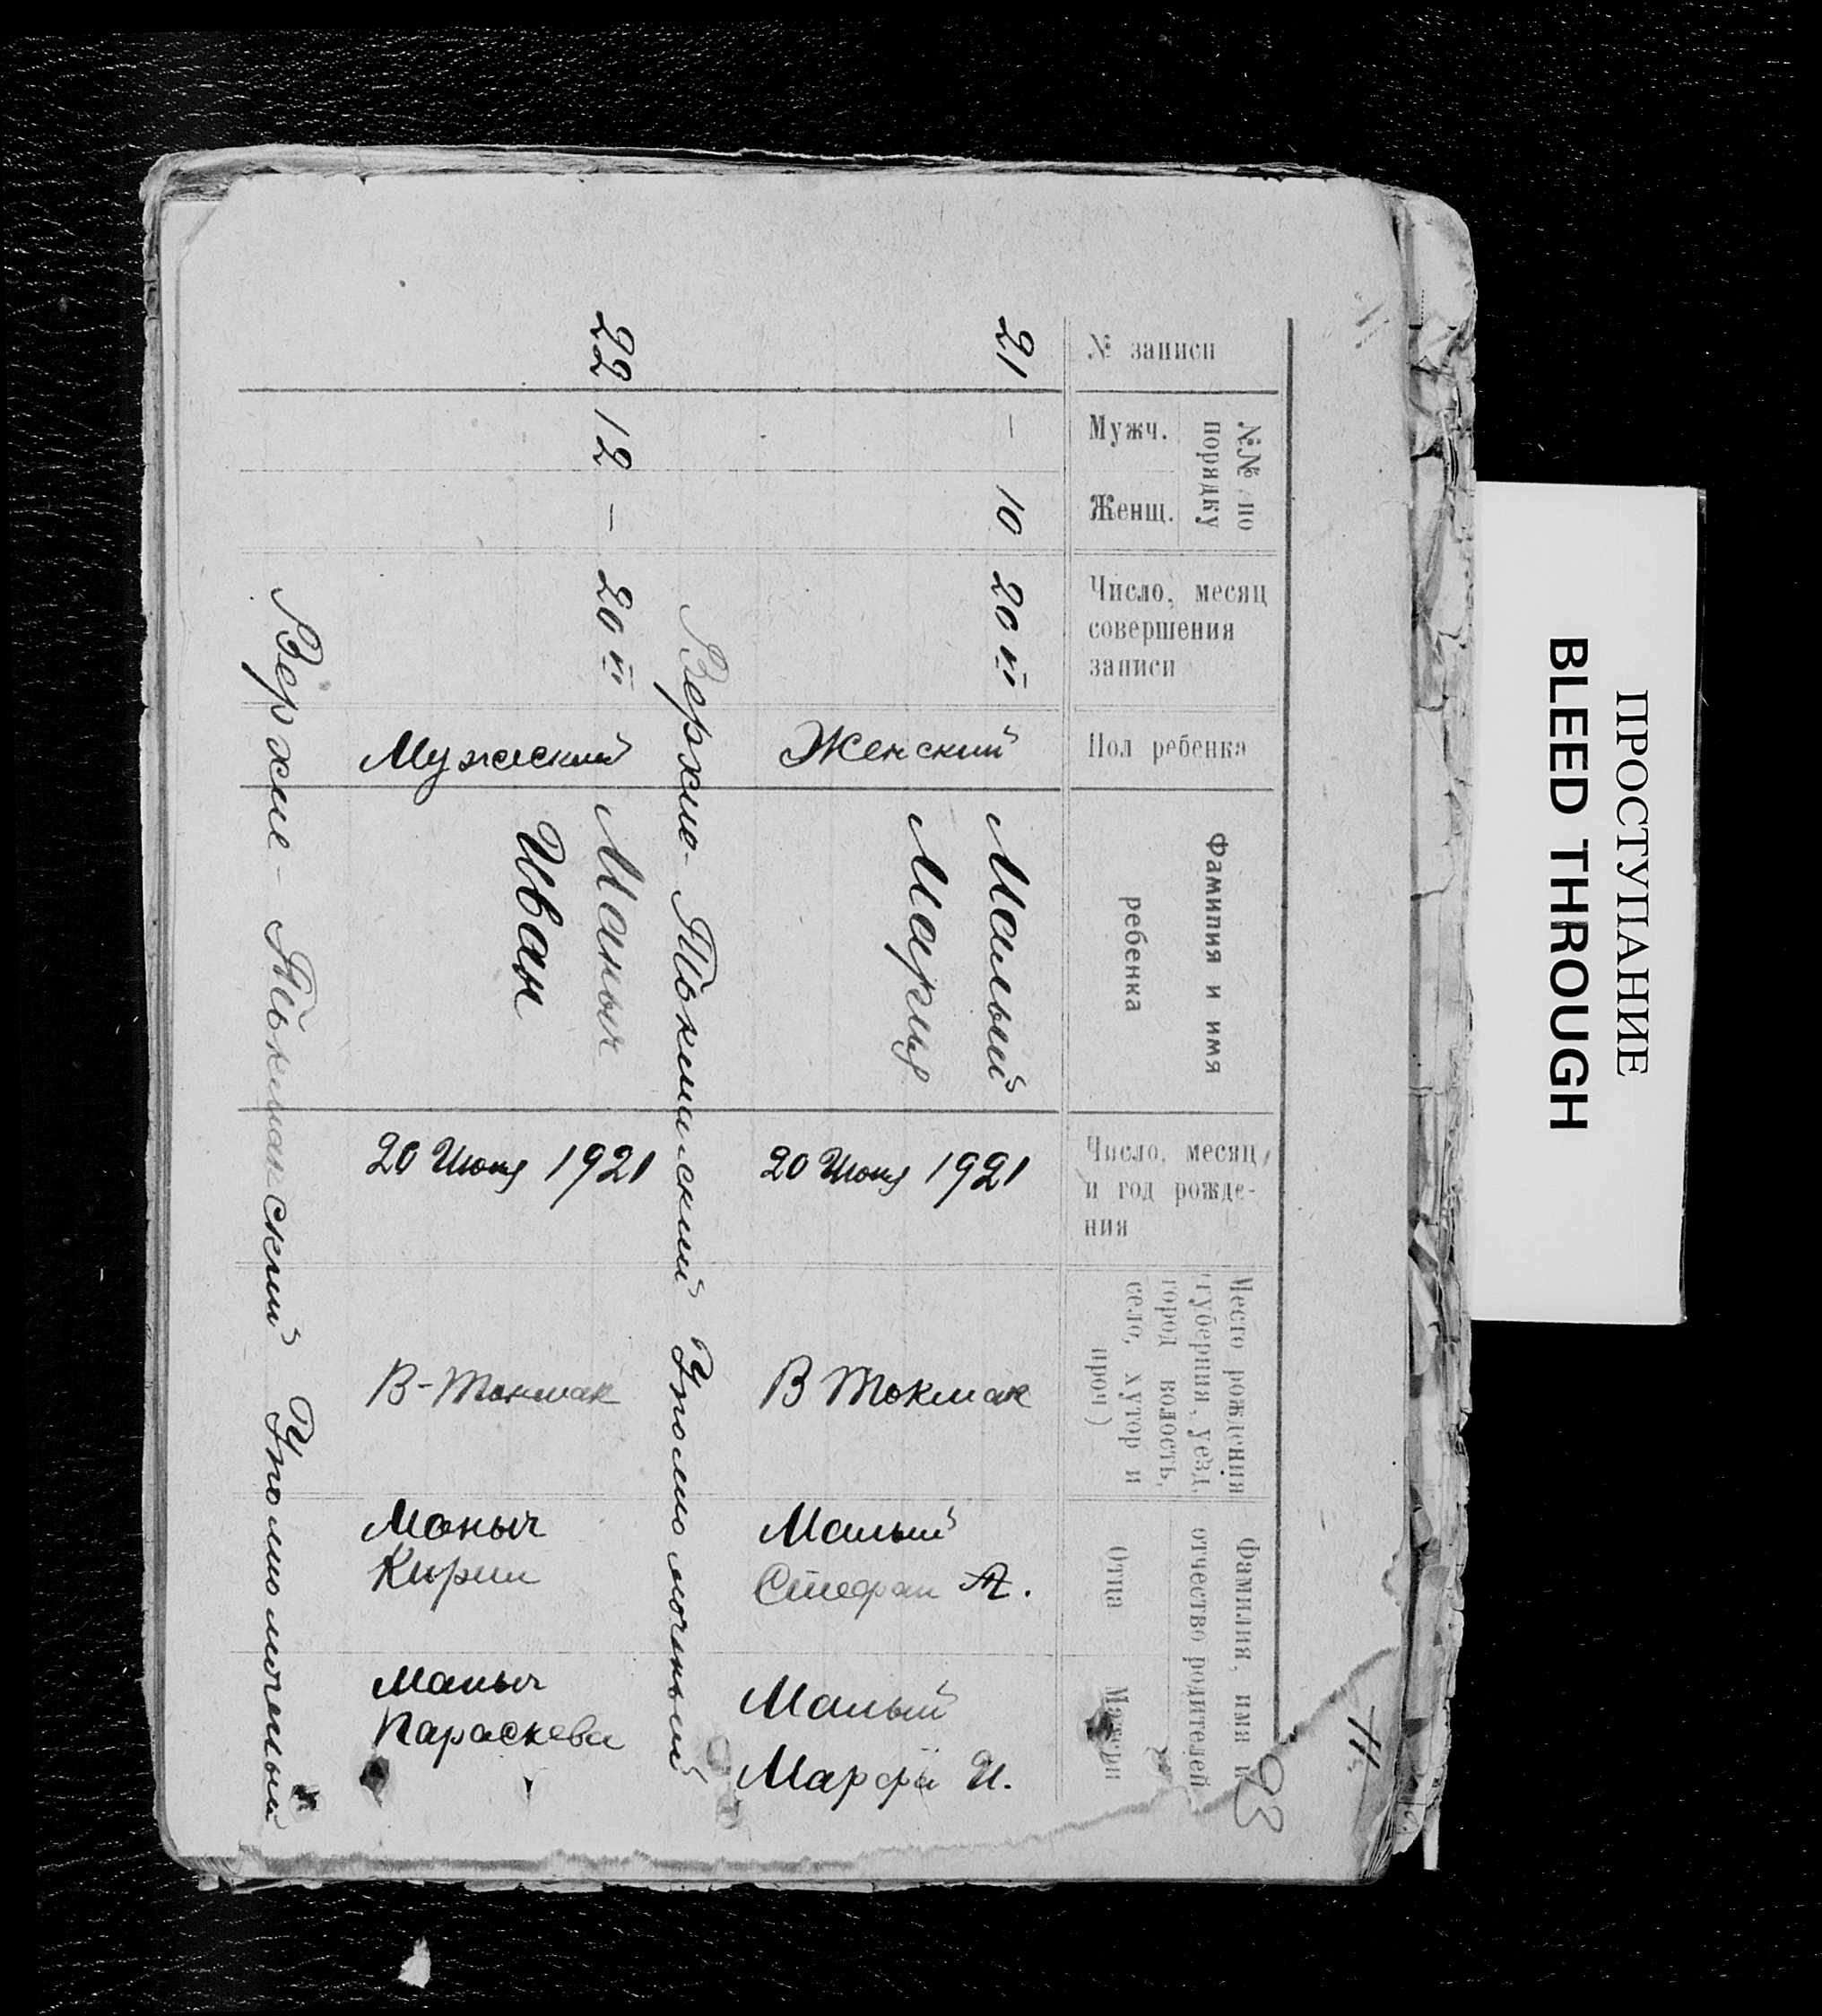 № записи
№№ по
порядку
Мужч.
Женщ.
Число, месяц
совершения
записи
Пол ребенка
Фамилия и имя
ребенка
Число, месяц
и год рожде-
ния
Место рождения
губерния, уезд,
город волость,
село, хутор и
проч)
Фамилия, имя и
отчество родителей
Отца
Матери
93
21
—
10
20 VI
Женский
Малый
Мария
20 Июня 1921
В Токмак
Малый
Стефан А.
Малый
Марфа И.
Верхне-Токмакский Уполномоченный
22
12
—
20 VI
Мужеский
Маныч
Иван
20 Июня 1921
В-Токмак
Маныч
Кирил
Маныч
Параскева
Верхне-Токмакский Уполномоченый
ПРОСТУПАНИЕ
BLEED THROUGH